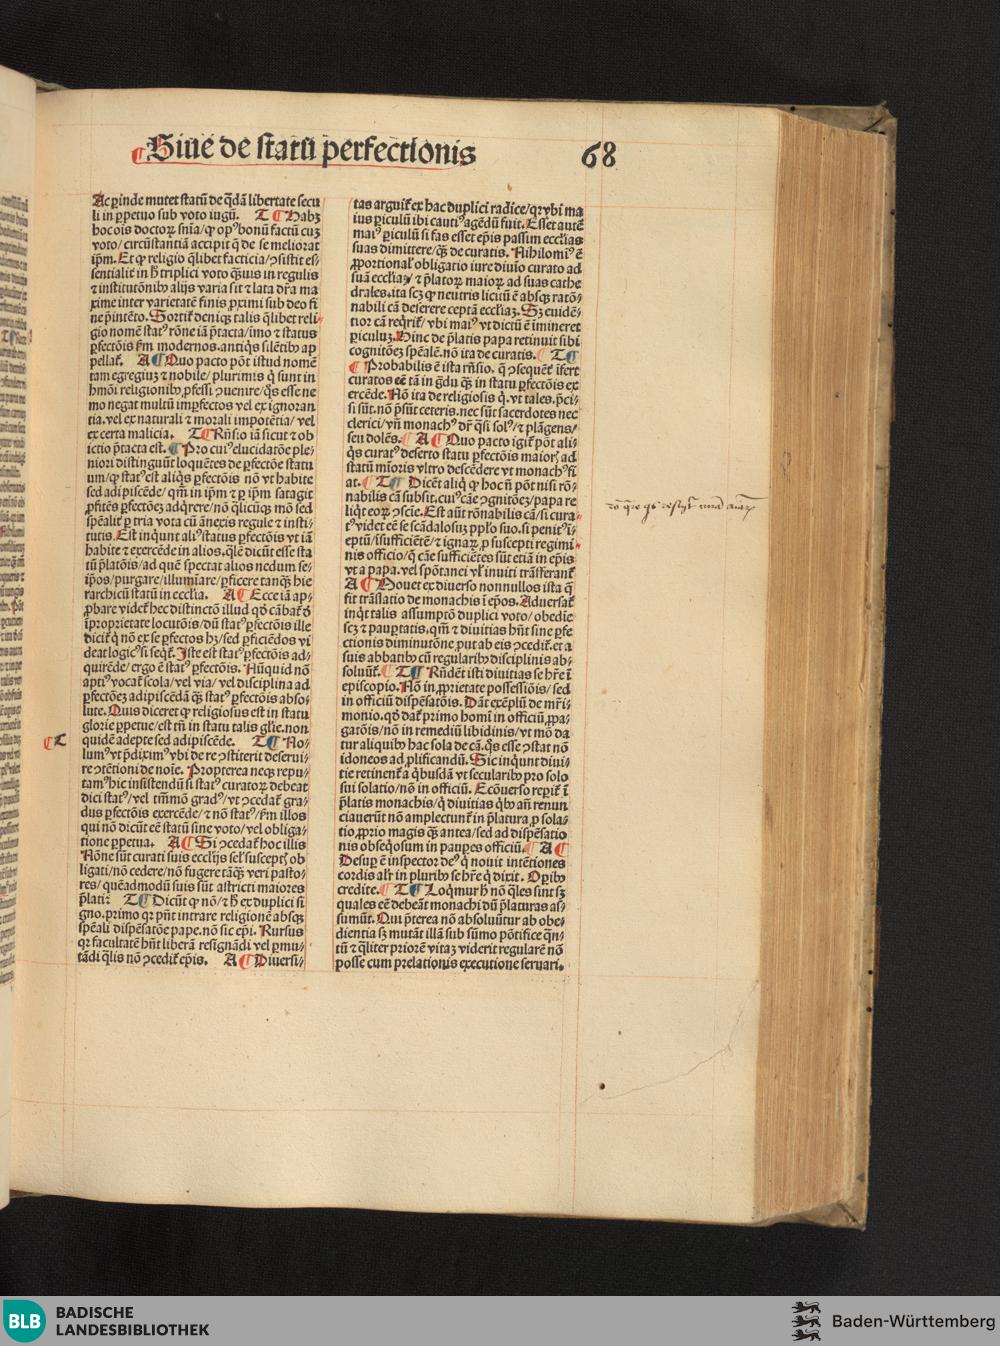 Siue de statu perfectionis 68
Ac ꝑinde mutet statū de q̄dā libertate secu
li in ꝑpetuo sub voto iugū. T Habꝫ
hoc ois doctoꝝ snīa/ ꝙ opꝰ bonū factū cuꝫ
voto/ circūstantiā accipit q̄ de se meliorat
ip̄m. Et ꝙ religio q̄libet facticia/ ꝯsistit es-
sentialit̄ in h̄ triplici voto q̄uis in regulis
⁊ institutōnibꝰ alijs varia sit ⁊ lata dr̄a ma
xime inter varietatē finis ꝓximi sub deo fi
ne p̄intēto. Sortit̄ deniqꝫ talis q̄libet reli-
gio nomē statꝰ rōne iā p̄tacta/ imo ⁊ status
ꝑfectōis ẜm modernos. antiq̄s silētibꝰ ap
pellat̄. A Quo pacto pōt istud nomē
tam egregiuꝫ ⁊ nobile/ plurimis q̄ sunt in
hmōi religionibꝰ ꝓfessi ꝯuenire/ q̄s esse ne
mo negat multū imꝑfectos vel ex ignoran
tia. vel ex naturali ⁊ morali impotētia/ vel
ex certa malicia. T Rn̄sio iā sicut ⁊ ob
iectio p̄tacta est. Pro cuiꝰ elucidatōe ple-
niori distinguūt loquētes de ꝑfectōe statu
um/ ꝙ statꝰ est aliq̄s ꝑfectōis nō vt habite
sed adipiscēde/ qm̄ in ip̄m ⁊ ꝑ ip̄m satagit
ꝓfitēs ꝑfectōeꝫ adq̄rere/ nō q̄licūqꝫ mō sed
spēalit̄ ꝑ tria vota cū ānexis regule ⁊ insti-
tutis. Est inqunt aliꝰ status ꝑfectōis vt iā
habite ⁊ exercēde in alios. q̄lē dicūt esse sta
tū p̄latōis/ ad quē spectat alios nedum se-
ip̄os/ purgare/ illumīare/ ꝑficere tanq̄ꝫ hie
rarchicū statū in ecclīa. A Ecce iā ap-
ꝓbare videt̄ hec distinctō illud qd̄ cābat̄ ō
īproprietate locutōis/ dū statꝰ ꝑfectōis ille
dicit̄ q̄ nō ex se ꝑfectos hꝫ/ sed ꝑficiēdos vi
deat logicꝰ si seqt̄. Iste est statꝰ ꝑfectōis ad-
quirēde/ ergo ē statꝰ ꝑfectōis. Nūquid nō
aptiꝰ vocat̄ scola/ vel via/ vel disciplina ad
ꝑfectōeꝫ adipiscēdā q̄ꝫ statꝰ ꝑfectōis abso-
lute. Quis diceret ꝙ religiosus est in statu
glorie ꝑpetue/ est tn̄ in statu talis glīe. non
quidē adepte sed adipiscēde. T No-
lumꝰ vt p̄diximꝰ vbi de re ꝯstiterit deserui-
re ꝯtētioni de noīe. Propterea neqꝫ repu-
tamꝰ hic insistendū si statꝰ curatoꝝ debeat
dici statꝰ/ vel tm̄mō gradꝰ/ vt ꝯcedat̄ gra-
dus ꝑfectōis exercēde/ ⁊ nō statꝰ/ ẜm illos
qui nō dicūt eē statū sine voto/ vel obliga-
tione ꝑpetua. A Si ꝯcedat̄ hoc illis
Nōne sūt curati suis ecclījs sel̄ susceptꝭ ob
ligati/ nō cedere/ nō fugere tāq̄ꝫ veri pasto-
res/ quēadmodū suis sūt astricti maiores
p̄lati? T Dicūt ꝙ nō/ ⁊ h̄ ex duplici si
gno. primo qꝛ pn̄t intrare religionē absqꝫ
spēali dispēsatōe pape. nō sic ep̄i. Rursus
qꝛ facultatē hn̄t liberā resignādi vel ꝑmu-
tādi q̄lis nō ꝯcedit̄ ep̄is. A Diuersi-
tas arguit̄ ex hac duplici radice/ qꝛ vbi ma
ius ꝑiculū ibi cautiꝰ agēdū fuit. Esset autē
maiꝰ ꝑiculū si fas esset ep̄is passim ecclīas
suas dimittere/ q̄ꝫ de curatis. Nihilomīꝰ ē
ꝓportional̄ obligatio iure diuīo curato ad
suā ecclīaꝫ/ ⁊ p̄latoꝝ maioꝝ ad suas cathe
drales. ita scꝫ ꝙ neutris licitū ē absqꝫ ratō-
nabili cā deserere ceptā ecclīaꝫ. Sꝫ euidē-
tior cā reqrit̄/ vbi maiꝰ vt dictū ē imineret
ꝑiculuꝫ. Hinc de p̄latis papa retinuit sibi
cognitōeꝫ spēalē. nō ita de curatis. T
Probabilis ē ista rn̄sio. q̄ ꝯsequēt̄ īfert
curatos eē tā in gḋu q̄ꝫ in statu ꝑfectōis ex
ercēde. Nō ita de religiosis q̄. vt tales. p̄ci-
si sūt. nō p̄sūt ceteris. nec sūt sacerdotes nec
clerici/ vn̄ monachꝰ dr̄ q̄si solꝰ/ ⁊ plāgens/
seu dolēs. A Quo pacto igit̄ pōt ali-
q̄s curatꝰ deserto statu ꝑfectōis maiorꝭ ad
statū mīoris vltro descēdere vt monachꝰ fi
at. T Dicēt aliq̄ ꝙ hoc n̄ pōt nisi rō-
nabilis cā subsit. cuiꝰ cāe ꝯgnitōeꝫ/ papa re
liqt̄ eoꝝ ꝯscīe. Est aūt rōnabilis cā/ si cura-
tꝰ videt eē se scādalosuꝫ ppl̄o suo. si penitꝰ ī-
eptū/ īsufficiētē/ ⁊ ignaꝝ ꝓ suscepti regimi-
nis officio/ q̄ cāe sufficiētes sūt etiā in ep̄is
vt a papa. vel spōtanei vl̄ inuiti trāsferant̄
A Mouet ex diuerso nonnullos ista q̄
fit trāslatio de monachis ī ep̄os. Aduersat̄
inq̄t talis assumptō duplici voto/ obedīe
scꝫ ⁊ paupertatis. qm̄ ⁊ diuitias hn̄t sine ꝑfe
ctionis diminutōne prout ab eis ꝯcedit̄. et a
suis abbatibꝰ cū regularibꝰ disciplinis ab-
soluūt̄. T Rn̄dēt isti diuitias se hr̄e ī
episcopio. Nō in ꝓprietate possessiōis/ sed
in officiū dispēsatōis. Dāt exēplū de mr̄i-
monio. qd̄ dat̄ primo homī in officiū ꝓpa-
gatōis/ nō in remediū libidinis/ vt mō da
tur aliquibꝰ hac sola de cā. q̄s esse ꝯstat nō
idoneos ad ꝓlificandū. Sic inqunt diui-
tie retinent̄ a q̄busdā vt secularibꝰ pro solo
sui solatio/ nō in officiū. Ecōuerso reꝑit̄ ī
p̄latis monachis/ q̄ diuitias qbꝰ an̄ renun
ciauerūt nō amplectunt̄ in p̄latura ꝓ sola-
tio ꝓprio magis q̄ꝫ antea/ sed ad dispēsatio
nis obseq̄osum in pauꝑes officiū. A
Desuꝑ ē inspector deꝰ q̄ nouit intētiones
cordis alr̄ in pluribꝰ se hr̄e q̄ dixit. Opibꝰ
credite. T Loq̄mur h̄ nō q̄les sint sꝫ
quales eē debeāt monachi dū p̄laturas as-
sumūt. Qui p̄terea nō absoluūtur ab obe-
dientia sꝫ mutāt illā sub sūmo pōtifice q̄n-
tū ⁊ q̄liter priorē vitaꝫ viderit regularē nō
posse cum prelationis executione seruari.
T
BLB BADISCHE
LANDESBIBLIOTHEK
Baden-Württemberg